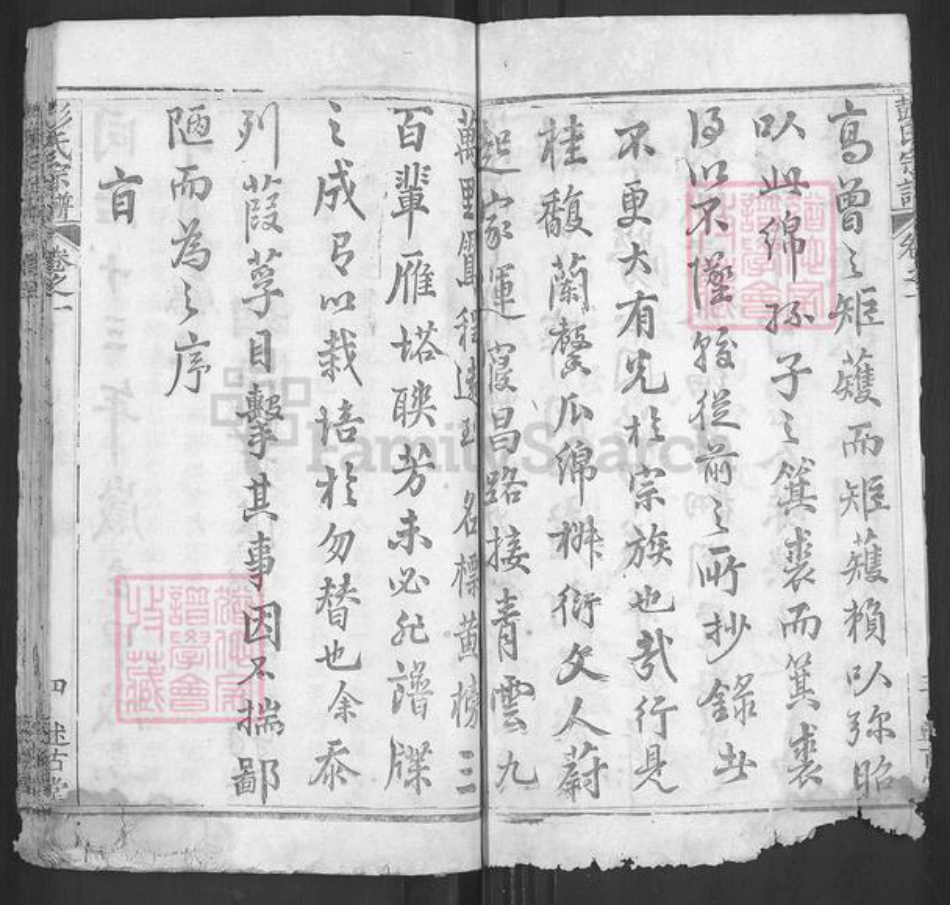 高曾之矩蒦而矩蒦賴以弥昭
以此綿孫子之箕裘而箕裘
得以不墜較從前之所抄錄出
不更大有光於宗族也哉行見
桂馥蘭馨瓜綿椒衍文人蔚
起家運寖昌路接青雲九
萬里鳳程遠 名標黃榜三
百輩雁塔聯芳未必非譜牒
之成有以栽培於勿替也余忝
列葭莩目擊其事因不揣鄙
陋而為之序
彭氏宗譜 卷之一
四 述古堂
FamilySearch
譜學會
收藏